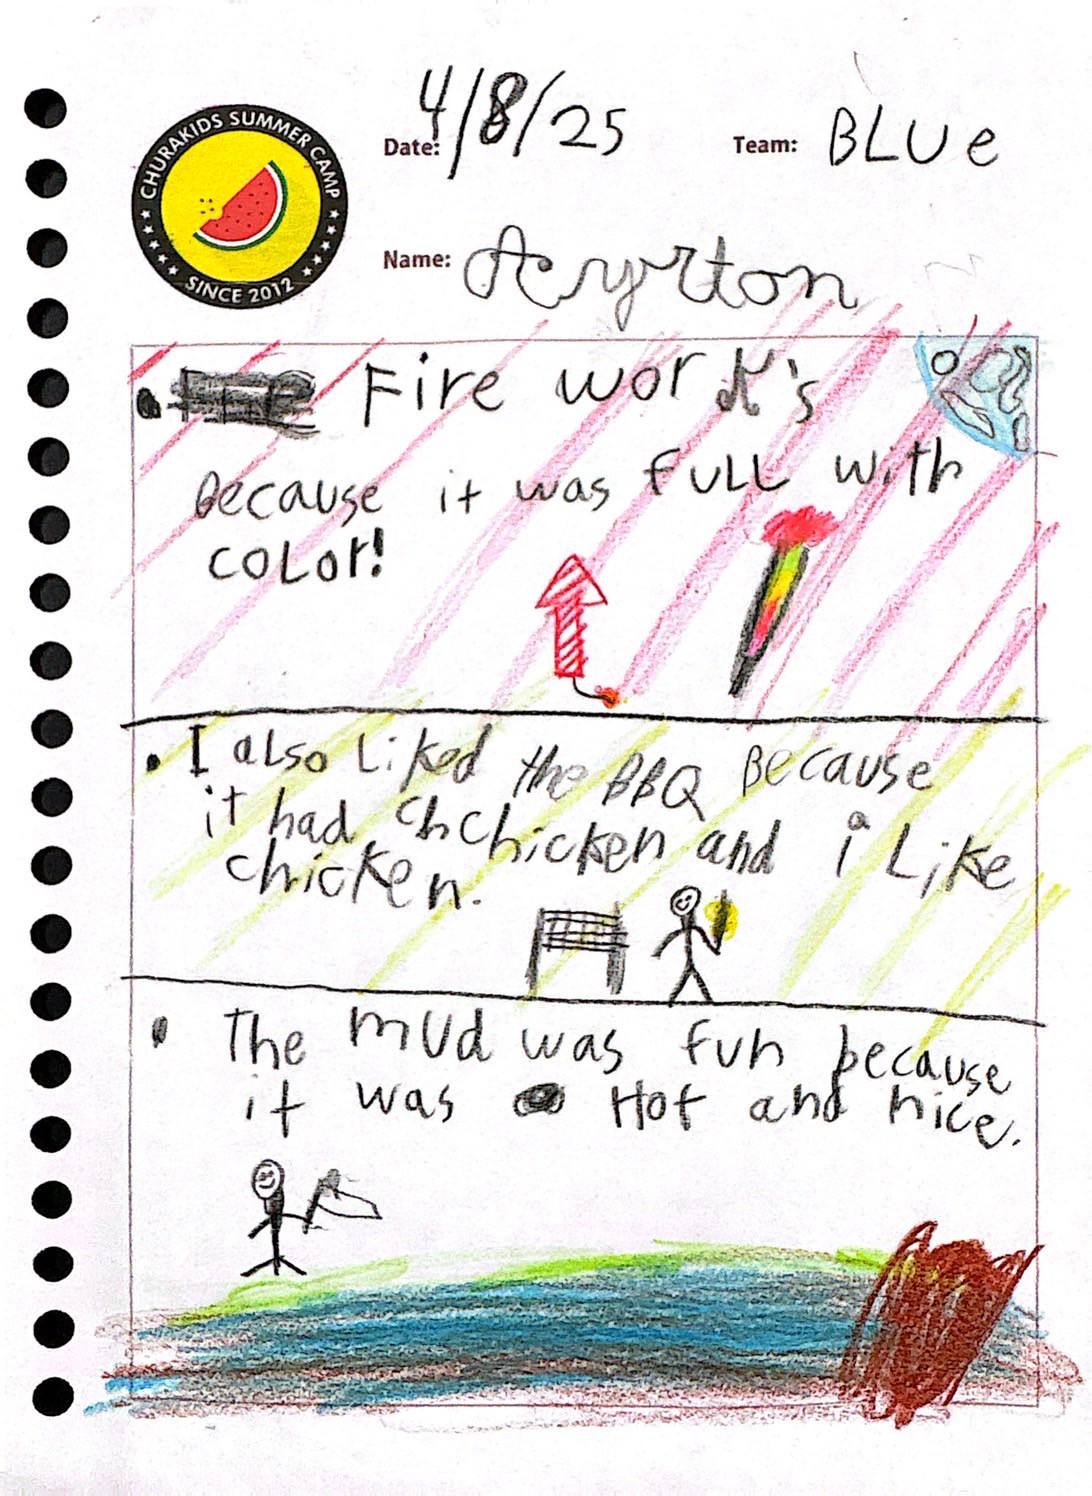 CHURAKIDS SUMMER CAMP
SINCE 2012
Date: 4/8/25
Team: BLUe
Name: Aeyrton
Fire work's
Because it was fULL with
coLor!
I aLso Liked the BBQ Because
it had chchicken and i Like
chicken.
The mud was fun because
it was Hot and nice.